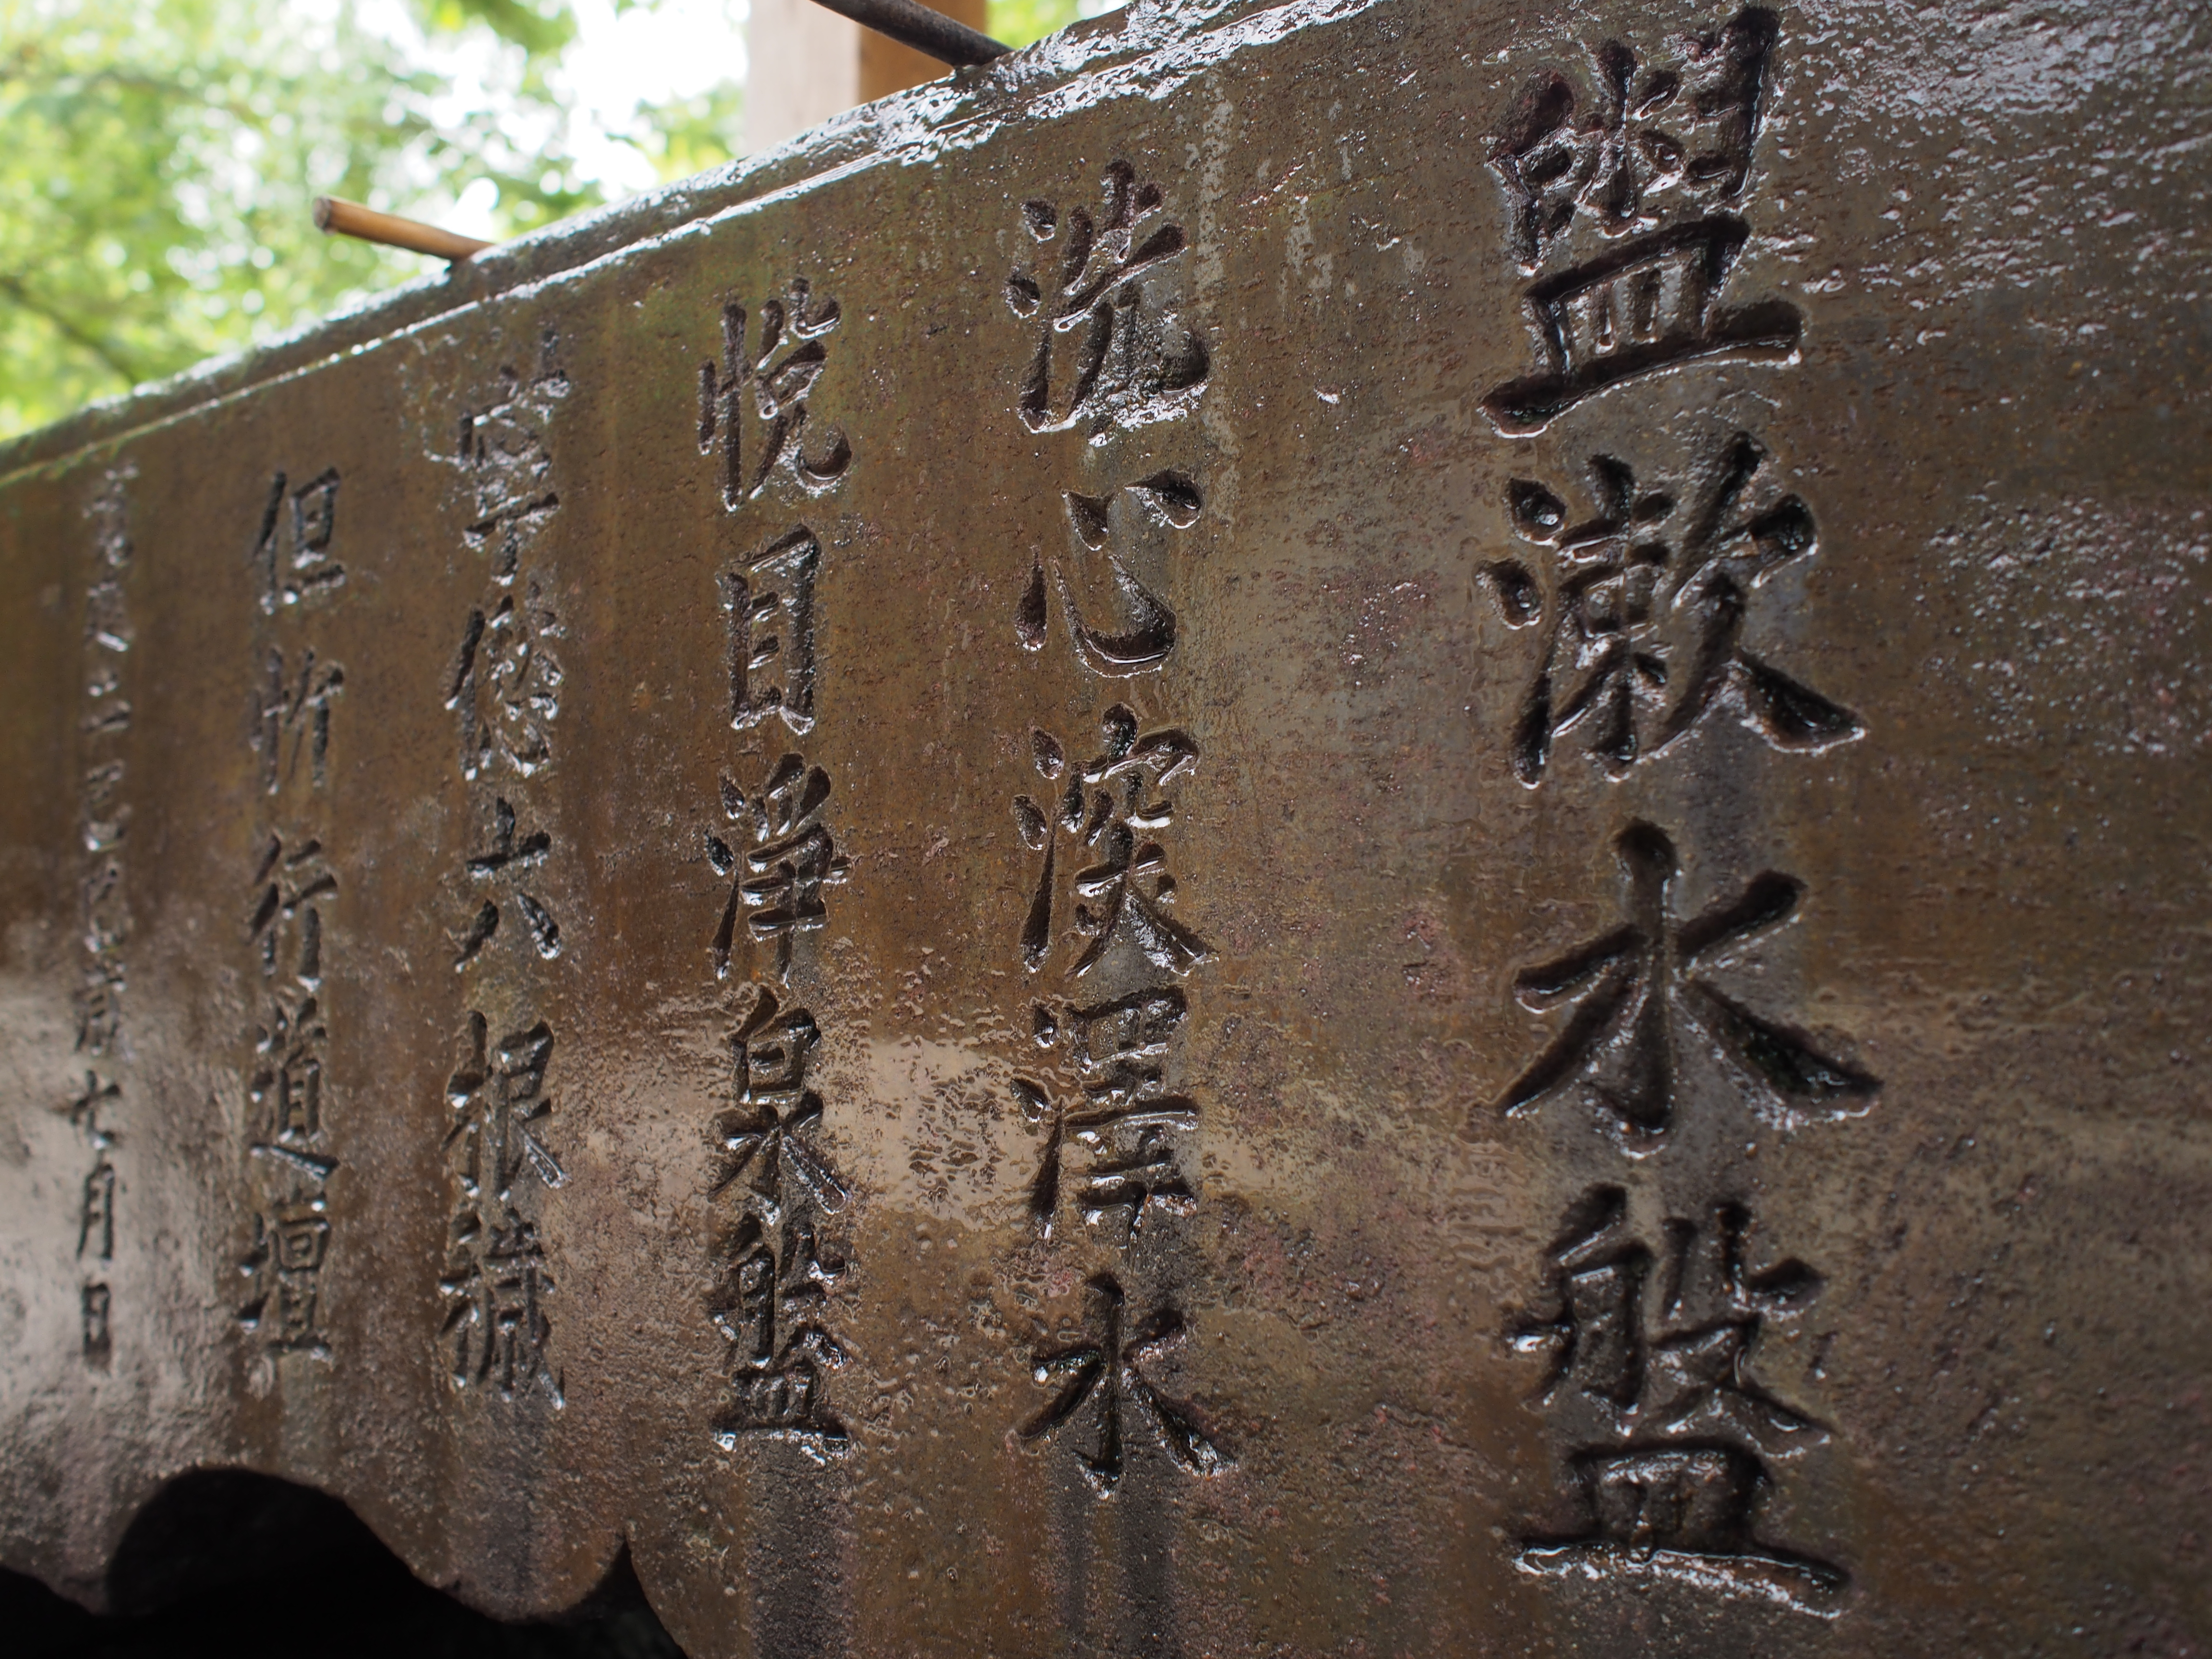 盥漱水盤
洗心深澤水
悦目淨泉盤
寧㤀六根穢
但忻行道壇
七月日